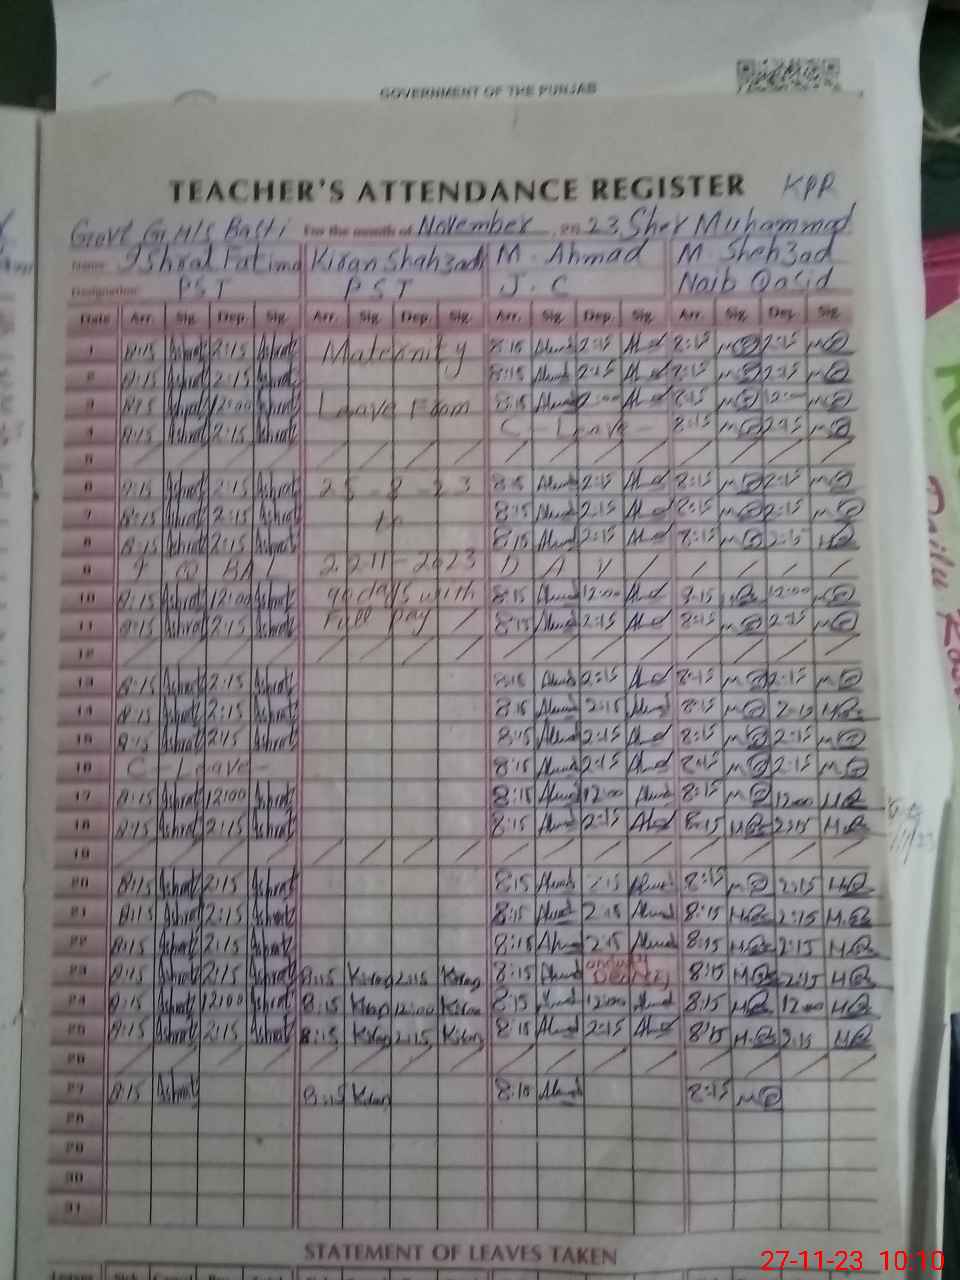 GOVERNMENT OF THE PUNJAB
TEACHER'S ATTENDANCE REGISTER KPR
Govt G.H/S Basti For the month of November 2023 Sher Muhammad
Name Ishrat Fatima Kiran Shahzadi M. Ahmad M. Shehzad
Designation PST PST J.C Naib Qasid
Date Arr. Sig. Dep. Sig. Arr. Sig. Dep. Sig. Arr. Sig. Dep. Sig. Arr. Sig. Dep. Sig.
1 8:15 Ishrat 2:15 Ishrat Maternity 8:15 Ahmad 2:15 Ahmad 8:15 2:15
2 8:15 Ishrat 2:15 Ishrat 8:15 Ahmad 2:15 Ahmad 8:15 2:15
3 8:15 Ishrat 12:00 Ishrat Leave From 8:15 Ahmad 12:00 Ahmad 8:15 12:00
4 8:15 Ishrat 2:15 Ishrat C - Leave - 8:15 2:15
5 / / / / / / / / / / / / / / / /
6 8:15 Ishrat 2:15 Ishrat 25-8-23 8:15 Ahmad 2:15 Ahmad 8:15 2:15
7 8:15 Ishrat 2:15 Ishrat to 8:15 Ahmad 2:15 Ahmad 8:15 2:15
8 8:15 Ishrat 2:15 Ishrat 8:15 Ahmad 2:15 Ahmad 8:15 2:15
9 IQBAL 22-11-2023 DAY / / / / /
10 8:15 Ishrat 12:00 Ishrat 90 days with 8:15 Ahmad 12:00 Ahmad 8:15 12:00
11 8:15 Ishrat 2:15 Ishrat Full pay / 8:15 Ahmad 2:15 Ahmad 8:15 2:15
12 / / / / / / / / / / / / / / / /
13 8:15 Ishrat 2:15 Ishrat 8:15 Ahmad 2:15 Ahmad 8:15 2:15
14 8:15 Ishrat 2:15 Ishrat 8:15 Ahmad 2:15 Ahmad 8:15 2:15
15 8:15 Ishrat 2:15 Ishrat 8:15 Ahmad 2:15 Ahmad 8:15 2:15
16 C - Leave - 8:15 Ahmad 2:15 Ahmad 8:15 2:15
17 8:15 Ishrat 12:00 Ishrat 8:15 Ahmad 12:00 Ahmad 8:15 12:00
18 8:15 Ishrat 2:15 Ishrat 8:15 Ahmad 2:15 Ahmad 8:15 2:15
19 / / / / / / / / / / / / / / / /
20 8:15 Ishrat 2:15 Ishrat 8:15 Ahmad 2:15 Ahmad 8:15 2:15
21 8:15 Ishrat 2:15 Ishrat 8:15 Ahmad 2:15 Ahmad 8:15 2:15
22 8:15 Ishrat 2:15 Ishrat 8:15 Ahmad 2:15 Ahmad 8:15 2:15
23 8:15 Ishrat 2:15 Ishrat 8:15 Kiran 2:15 Kiran 8:15 Ahmad on duty 8:15 2:15
24 8:15 Ishrat 12:00 Ishrat 8:15 Kiran 12:00 Kiran 8:15 Ahmad 12:00 Ahmad 8:15 12:00
25 8:15 Ishrat 2:15 Ishrat 8:15 Kiran 2:15 Kiran 8:15 Ahmad 2:15 Ahmad 8:15 2:15
26 / / / / / / / / / / / / / / / /
27 8:15 Ishrat 8:15 Kiran 8:10 Ahmad 8:15
28
29
30
31
STATEMENT OF LEAVES TAKEN
27-11-23 10:10
Daily Room